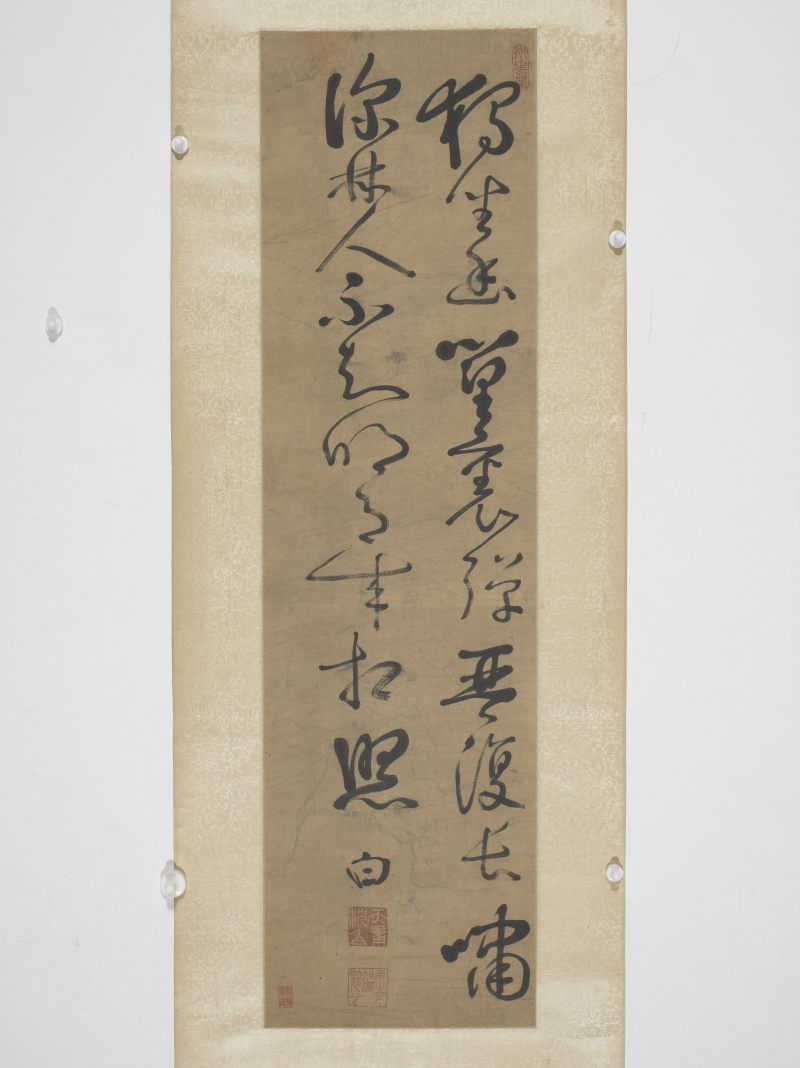 獨坐幽篁裏彈琴復長嘯
深林人不知明月來相照
白